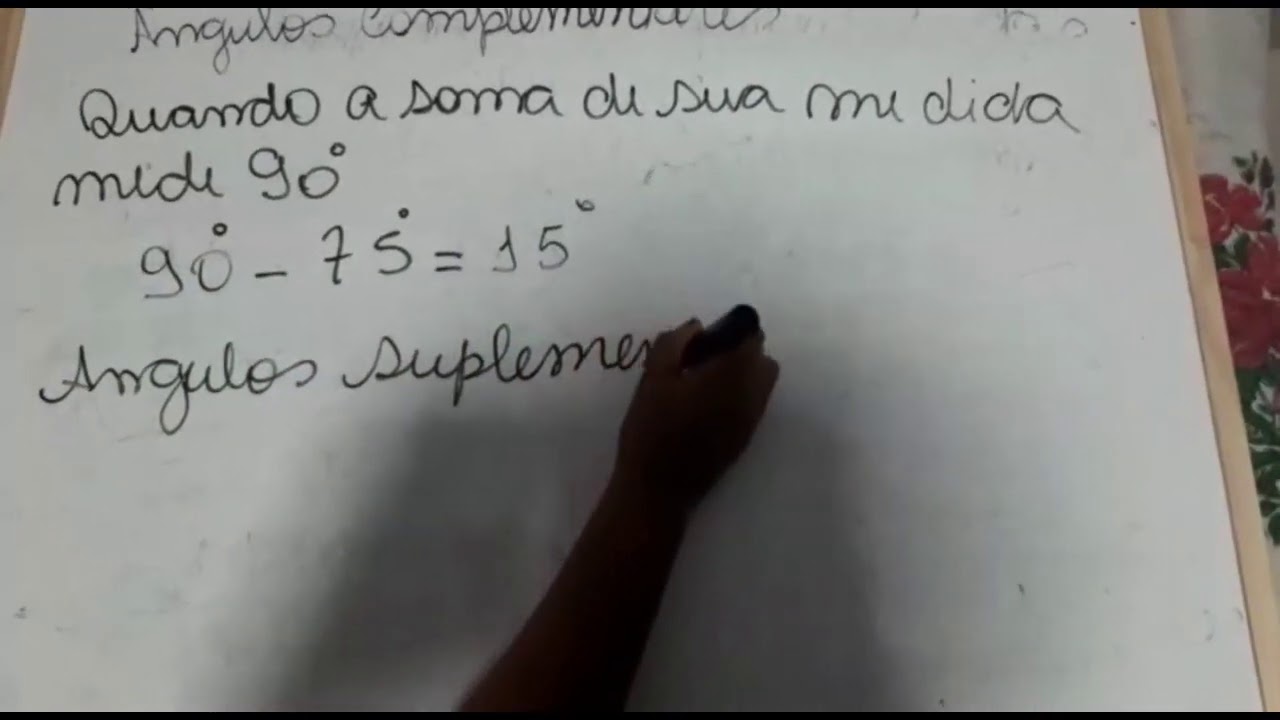 Angulos Complementares
Quando a soma de sua medida
mede 90°
90° - 75° = 15°
Angulos suplemen